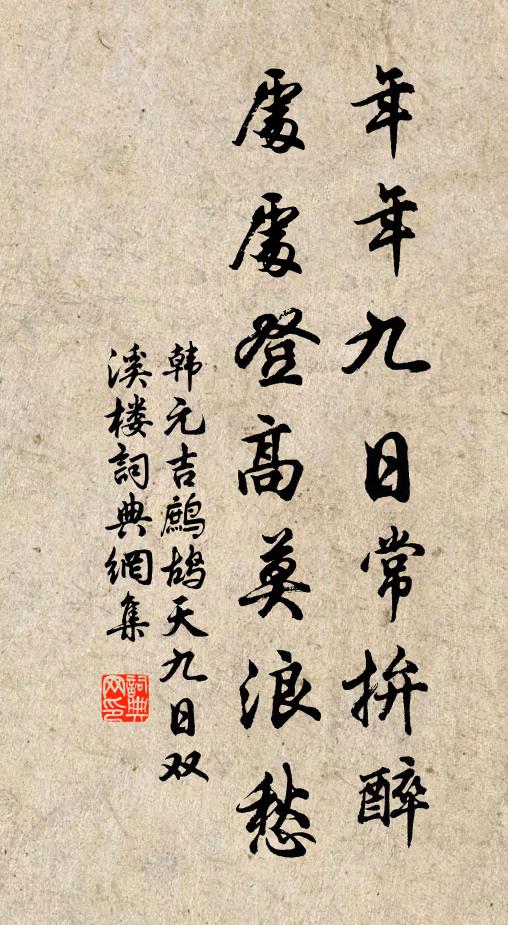 年年九日常拚醉
處處登高莫浪愁
韩元吉鹧鸪天九日双
溪楼詞典網集
詞典
网印